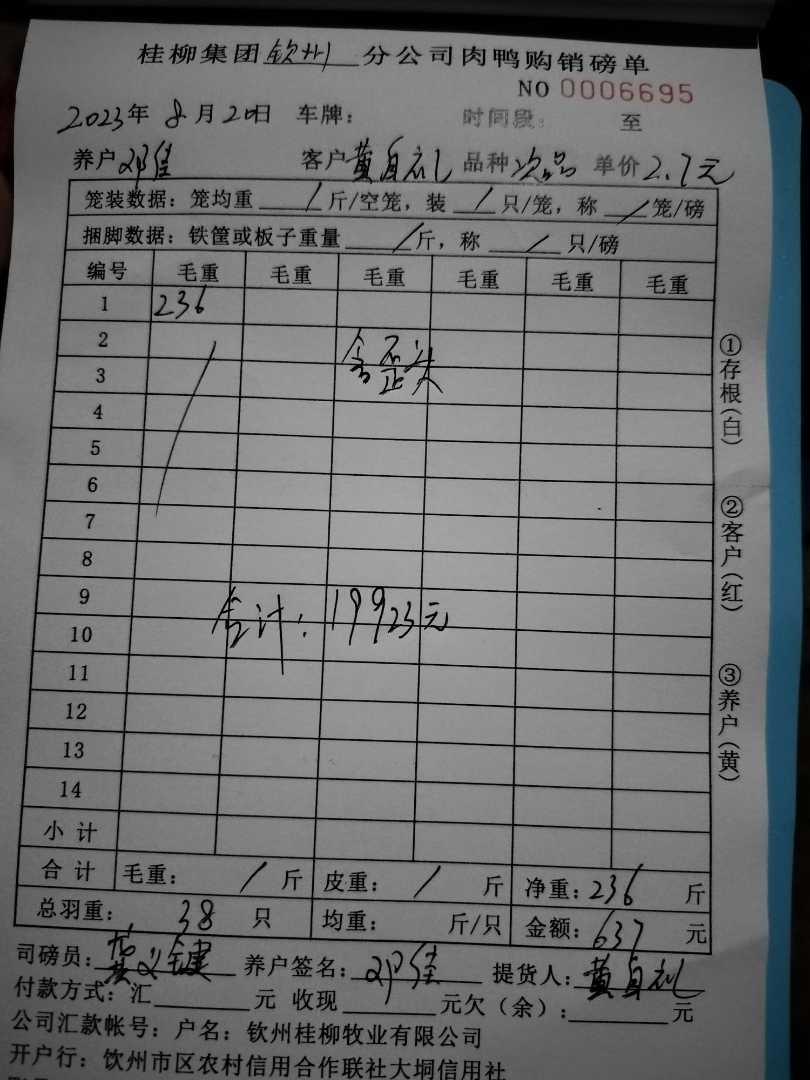 桂柳集团钦州分公司肉鸭购销磅单
NO 0006695
2023年8月20日 车牌： 时间段： 至
养户邓佳 客户黄自礼 品种次品 单价2.7元
笼装数据：笼均重 / 斤/空笼，装 / 只/笼，称 / 笼/磅
捆脚数据：铁筐或板子重量 / 斤，称 / 只/磅
编号 毛重 毛重 毛重 毛重 毛重 毛重
1 236
2
3
含歪头
4
5
6
7
8
9
合计：19923元
10
11
12
13
14
小计
合计 毛重： / 斤 皮重： / 斤 净重：236 斤
总羽重： 38 只 均重： 斤/只 金额：637 元
司磅员： 养户签名：邓佳 提货人：黄自礼
付款方式：汇 元 收现 元欠（余）： 元
公司汇款帐号：户名：钦州桂柳牧业有限公司
开户行：钦州市区农村信用合作联社大垌信用社
①存根（白）
②客户（红）
③养户（黄）